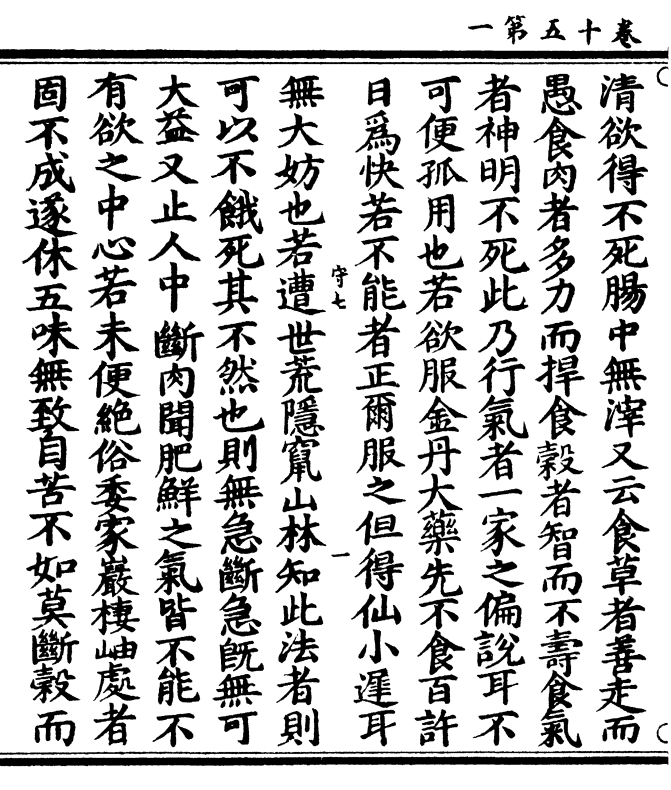 卷十五第一
清欲得不死腸中無滓又云食草者善走而
愚食肉者多力而悍食穀者智而不壽食氣
者神明不死此乃行氣者一家之偏說耳不
可便孤用也若欲服金丹大藥先不食百許
日爲快若不能者正爾服之但得仙小遲耳
無大妨也若遭世荒隱竄山林知此法者則
守七 一
可以不餓死其不然也則無急斷急旣無可
大益又止人中斷肉聞肥鮮之氣皆不能不
有欲之中心若未便絕俗委家巖棲岫處者
固不成遂休五味無致自苦不如莫斷穀而